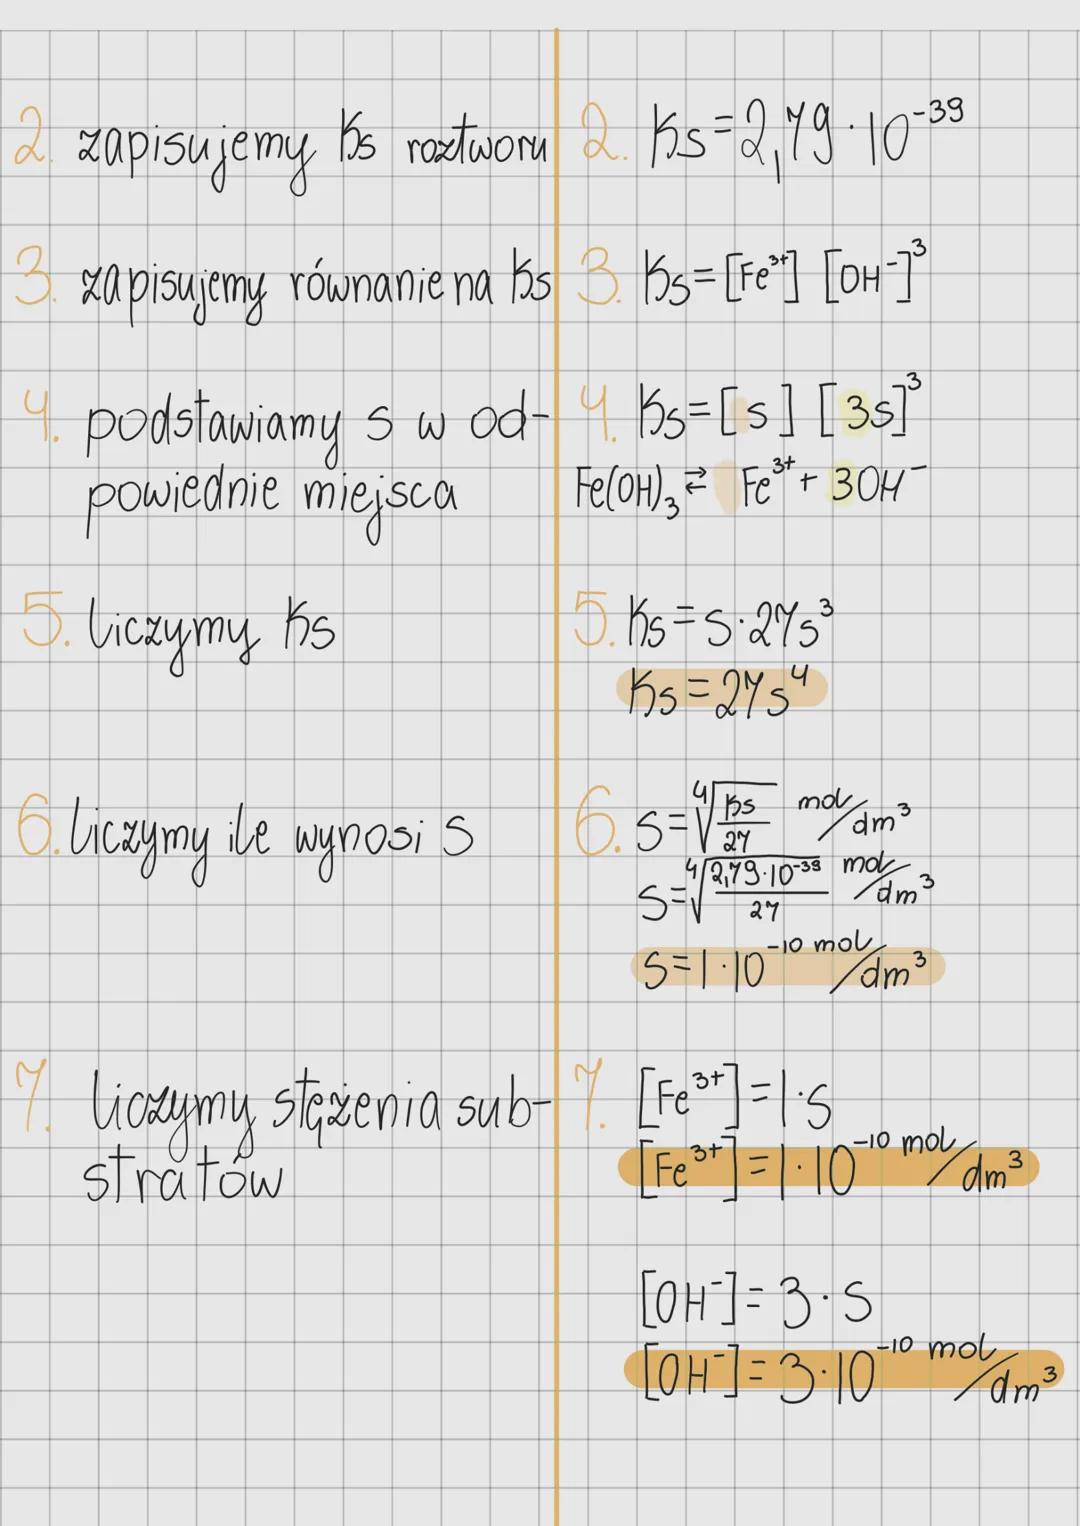 2. zapisujemy Ks roztworu
2. Ks=2,79·10⁻³⁹
3. zapisujemy równanie na Ks
3. Ks=[Fe³⁺] [OH⁻]³
4. podstawiamy s w od-
powiednie miejsca
4. Ks=[s] [3s]³
Fe(OH)₃ ⇄ Fe³⁺ + 3OH⁻
5. liczymy Ks
5. Ks=s·27s³
Ks=27s⁴
6. liczymy ile wynosi s
6. s=⁴√(Ks/27) mol/dm³
s=⁴√(2,79·10⁻³⁹/27) mol/dm³
s=1·10⁻¹⁰ mol/dm³
7. liczymy stężenia sub-
stratów
7. [Fe³⁺]=1·s
[Fe³⁺]=1·10⁻¹⁰ mol/dm³
[OH⁻]=3·s
[OH⁻]=3·10⁻¹⁰ mol/dm³